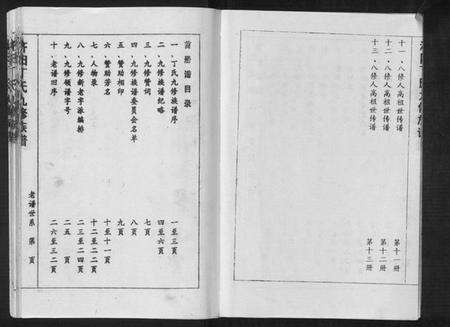 十一、八修人高祖世传谱 第十一册
十二、八修人高祖世传谱 第十二册
十三、八修人高祖世传谱 第十三册
首册谱目录
一、丁氏九修族谱序 一至三页
二、九修族谱纪略 四至六页
三、九修赞词 七页
四、九修族谱委员会名单 八页
五、赞助相印 九页
六、赞助芳名 十至十一页
七、人物录 十二至二二页
八、九修新老字派编排 二三至二四页
九、九修领谱字号 二五页
十、老谱旧序 二六至三二页
丁氏九修族谱
老谱世系 第 页